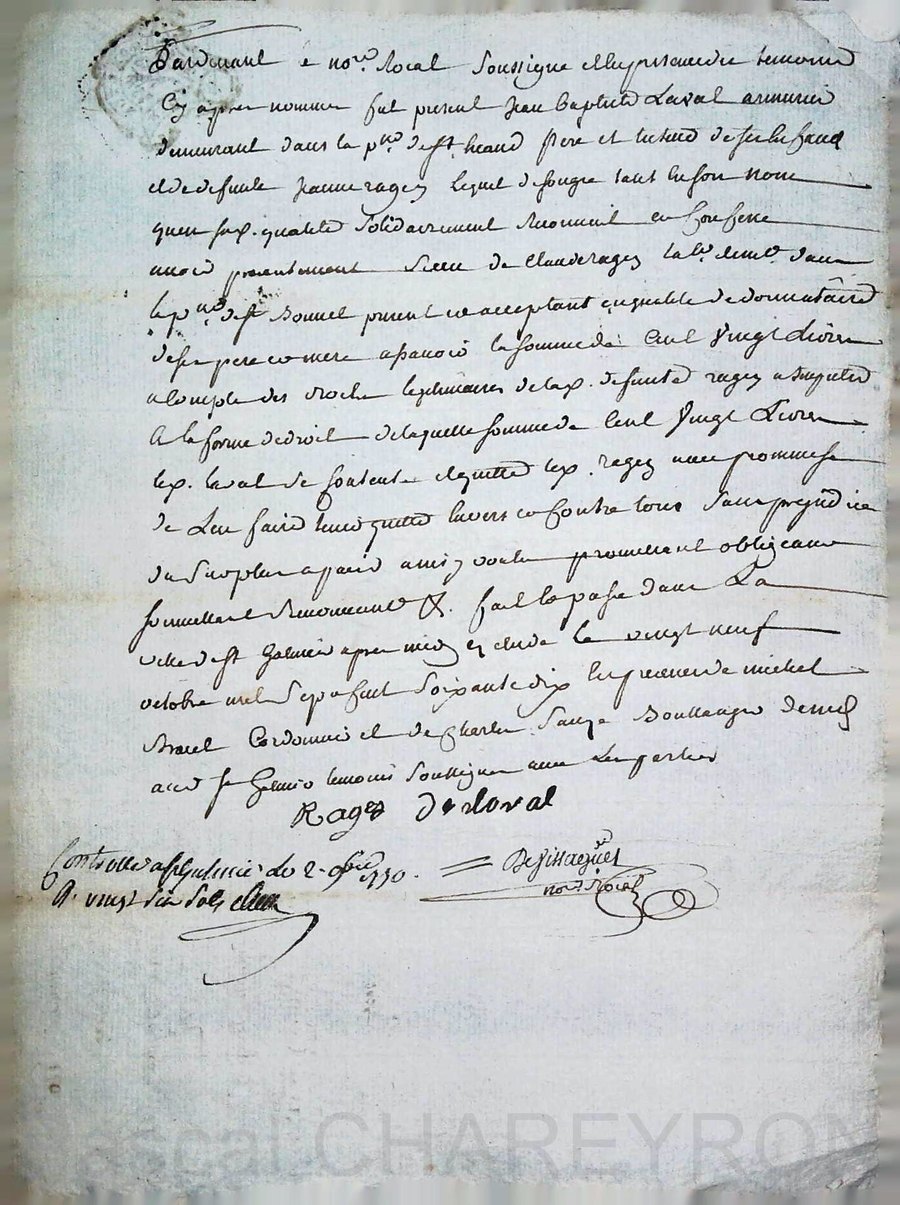 Pardevant le no.re Roial Soussigné et en presence des temoins
Cy apres nommes fut present Jean Baptiste Laval armurier
demeurant dans la p.sse de st. heand père et tuteur de ses enfans
et de defunte Jeanne ragey lequel de son gré tant en son nom
qu'en sus. qualité Solidairement Reconnoit et Confesse
avoir presentement Receu de Claude ragey dem.t dans
la p.sse de st Bonnet present et acceptant en qualité de donnataire
de ses pere et mere a savoir la somme de Cent Vingt Livres
a compte des droits legitimaires de la s. defunte ragey a imputer
a la forme de droit de laquelle somme de Cent Vingt Livres
le s. laval se Contente et quitte le s. ragey avec promesse
de L'en faire tenir quitte envers et Contre tous sans prejudice
du Surplus a parié ainsy voulu promettant obligeant
Soumettant Renonceant &. fait et passé dans La
ville de st Galmier apres midy etude le vingt neuf
octobre mil Sept cent Soixante dix En presence de michel
Cordonnier et de Charles Boullanger de
st Galmier temoins Soussignes avec Les parties
Ragey J B laval
Controllé a st Galmier le 2 9bre 1770.
R. vingt six sols
no.re Roial
Pascal CHAREYRON